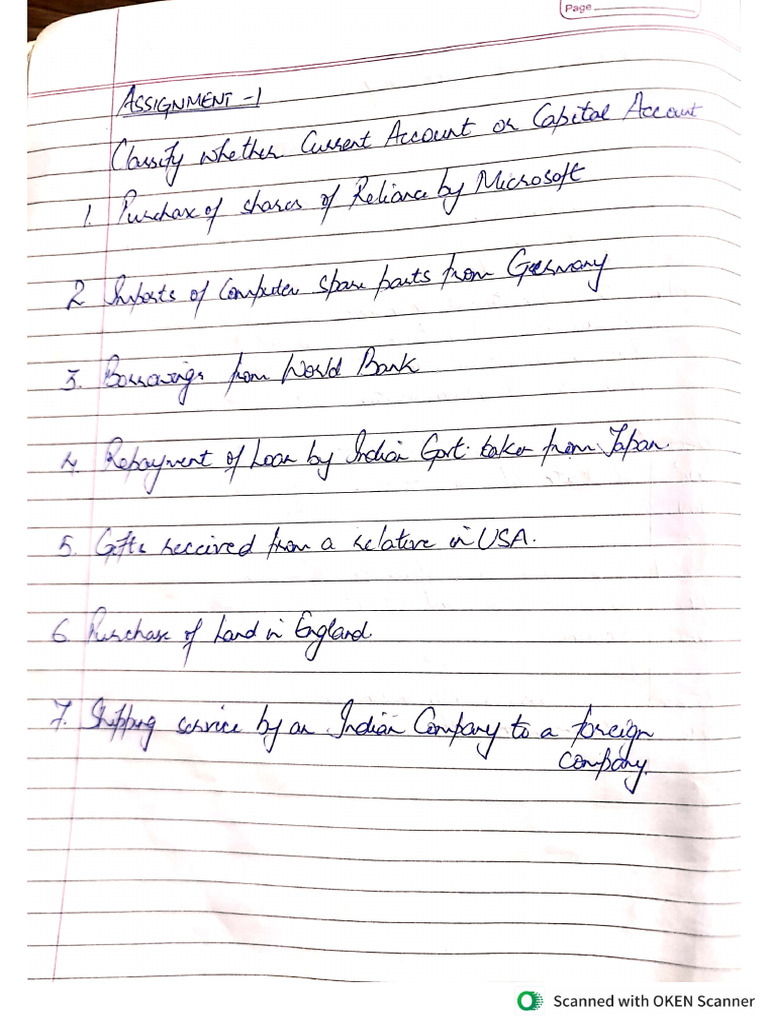 Page
ASSIGNMENT -1
Classify whether Current Account or Capital Account
1. Purchase of shares of Reliance by Microsoft
2 Imports of Computer spare parts from Germany
3. Borrowings from World Bank
4. Repayment of Loan by Indian Govt. taken from Japan.
5. Gifts received from a relative in USA.
6. Purchase of Land in England.
7. Shipping service by an Indian Company to a foreign
company.
Scanned with OKEN Scanner